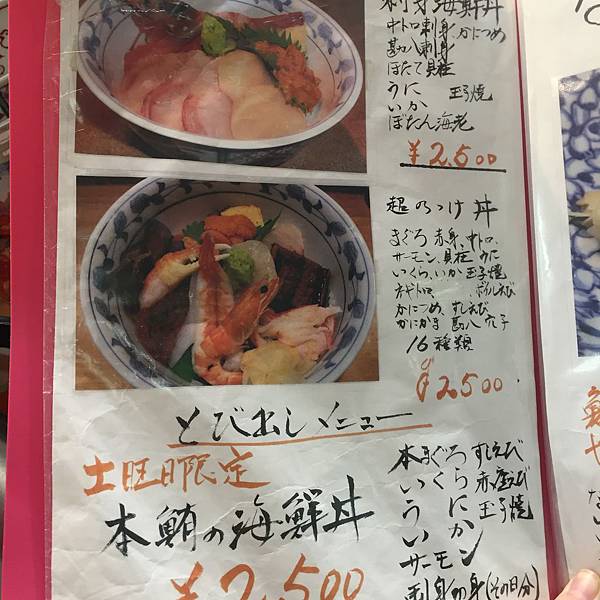 海鮮丼
中トロ刺身 かにつめ
勘八刺身
ほたて貝柱
うに 玉子焼
いか
ぼたん海老
¥2,500
超のっけ丼
まぐろ赤身、中トロ、
サーモン、貝柱 うに
いくら、いか 玉子焼
ボイルえび
かにつめ、すしえび
かにかま 勘八 穴子
16種類
¥2,500
とび出しメニュー
土日限定
本鮪の海鮮丼
¥2,500
本まぐろ すしえび
いくら 赤えび
うに 玉子焼
いか
サーモン
刺身 (その日分)